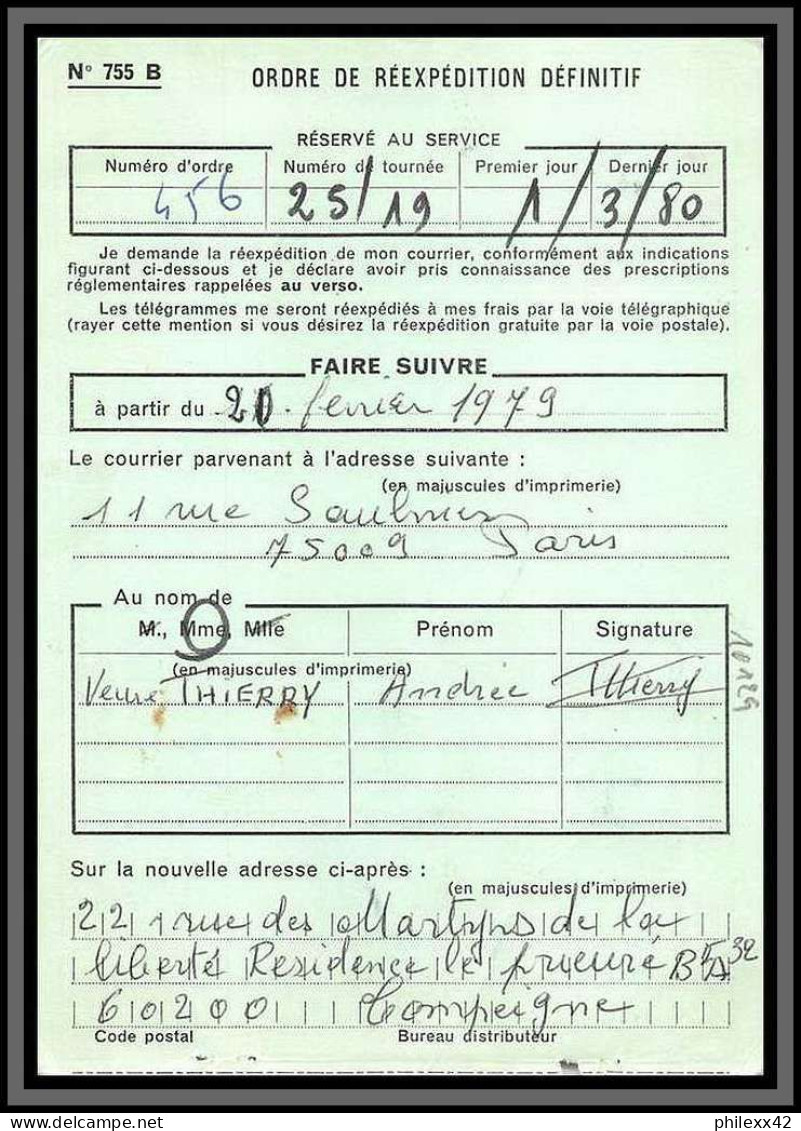 N° 755 B ORDRE DE RÉEXPÉDITION DÉFINITIF
RÉSERVÉ AU SERVICE
Numéro d'ordre Numéro de tournée Premier jour Dernier jour
456 25/19 1/3/80
Je demande la réexpédition de mon courrier, conformément aux indications
figurant ci-dessous et je déclare avoir pris connaissance des prescriptions
réglementaires rappelées au verso.
Les télégrammes me seront réexpédiés à mes frais par la voie télégraphique
(rayer cette mention si vous désirez la réexpédition gratuite par la voie postale).
FAIRE SUIVRE
à partir du 20 fevrier 1979
Le courrier parvenant à l'adresse suivante :
(en majuscules d'imprimerie)
11 rue Saulnier
75009 Paris
Au nom de
M., Mme, Mlle Prénom Signature
(en majuscules d'imprimerie)
Veuve THIERRY Andrée Thierry
10129
Sur la nouvelle adresse ci-après :
(en majuscules d'imprimerie)
22 rue des Martyrs de la
liberté Residence le prieuré
60200 Compiegne
Code postal Bureau distributeur
philexx42